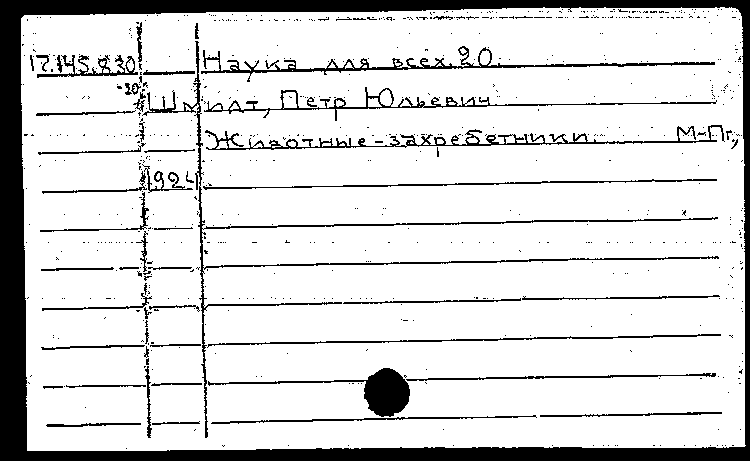 17.145.830 Наука для всех. 20.
-20 Шмидт, Петр Юльевич
Животные-захребетники. М-Пг,
1924